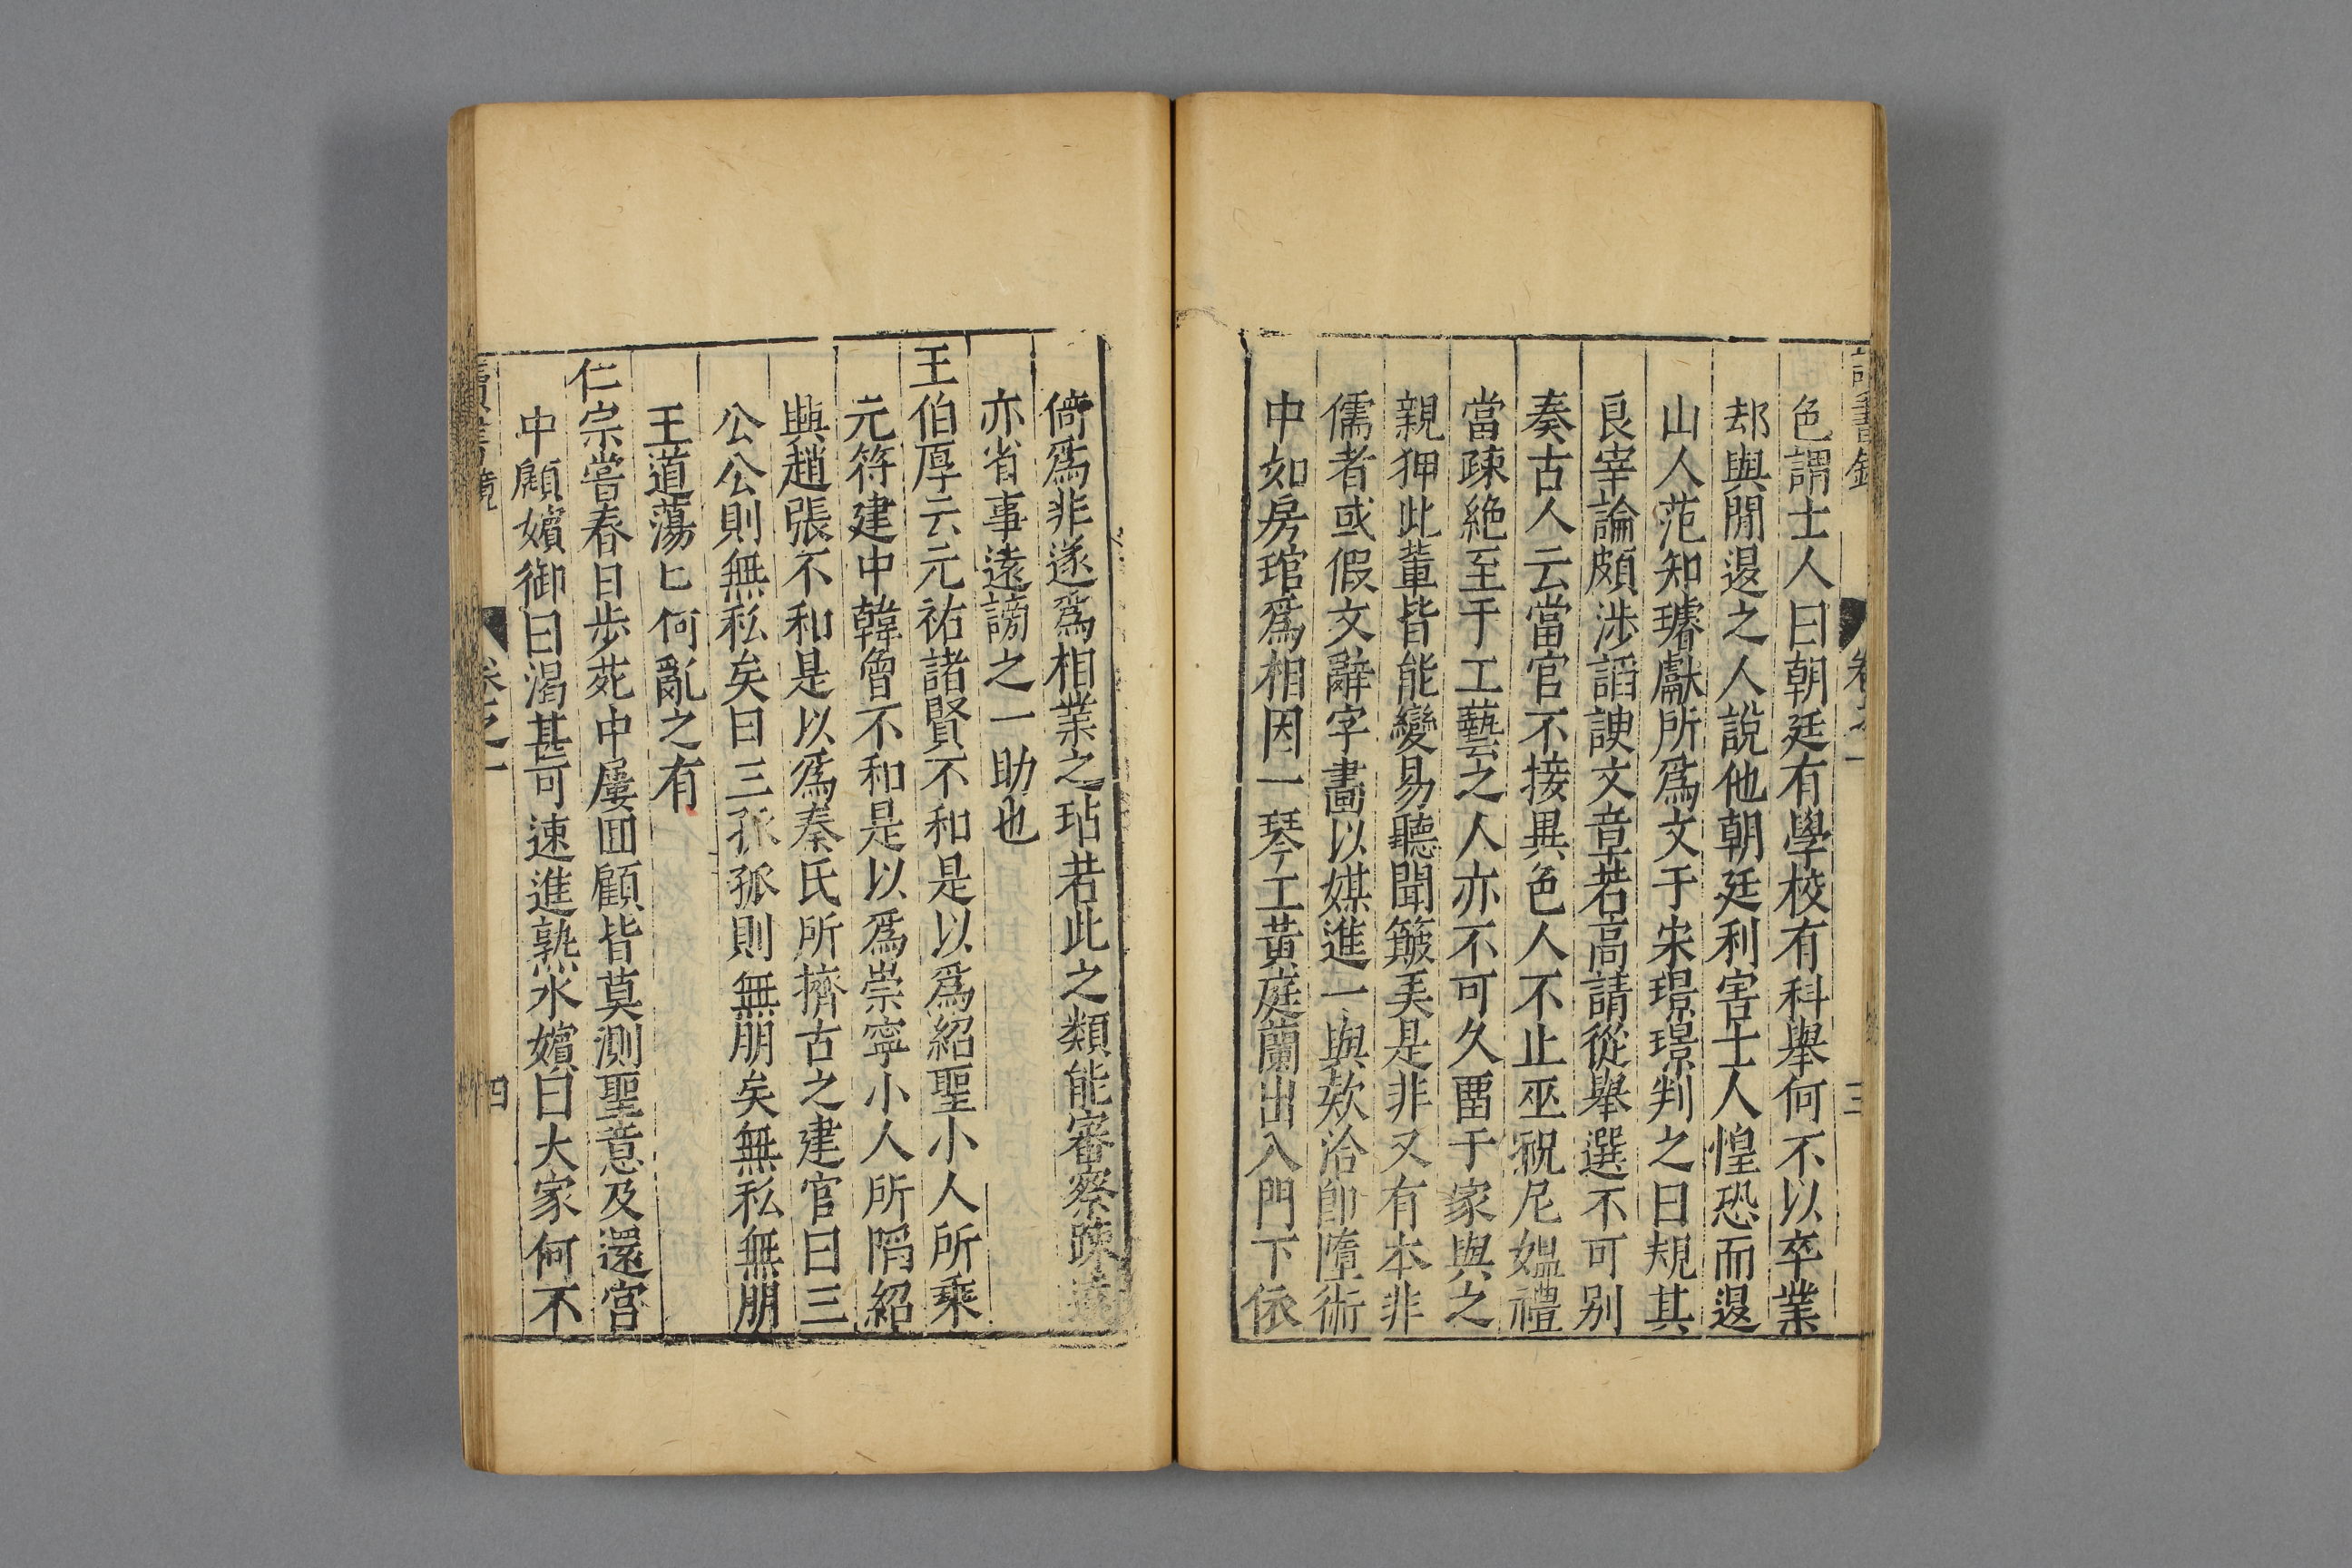 色謂士人曰朝廷有學校有科舉何不以卒業
却與閒退之人說他朝廷利害士人惶恐而退
山人范知璿獻所爲文于宋璟璟判之曰規其
良宰論頗涉謟諛文章若高請從舉選不可别
奏古人云當官不接異色人不止巫祝尼媼禮
當疎絶至于工藝之人亦不可久畱于家與之
親狎此輩皆能變易聽聞簸美是非又有本非
儒者或假文辭字畫以媒進一與欵洽卽墮術
中如房琯爲相因一琴工黃庭蘭出入門下依
倚爲非遂爲相業之玷若此之類能審察疎
亦省事遠謗之一助也
王伯厚云元祐諸賢不和是以爲紹聖小人所乘
元符建中韓曾不和是以爲崇寧小人所陷紹
與趙張不和是以爲秦氏所擠古之建官曰三
公公則無私矣曰三孤孤則無朋矣無私無朋
王道蕩匕何亂之有
仁宗嘗春日步苑中屢囬顧皆莫測聖意及還宮
中顧嬪御曰渴甚可速進熟水嬪曰大家何不
卷之一
四